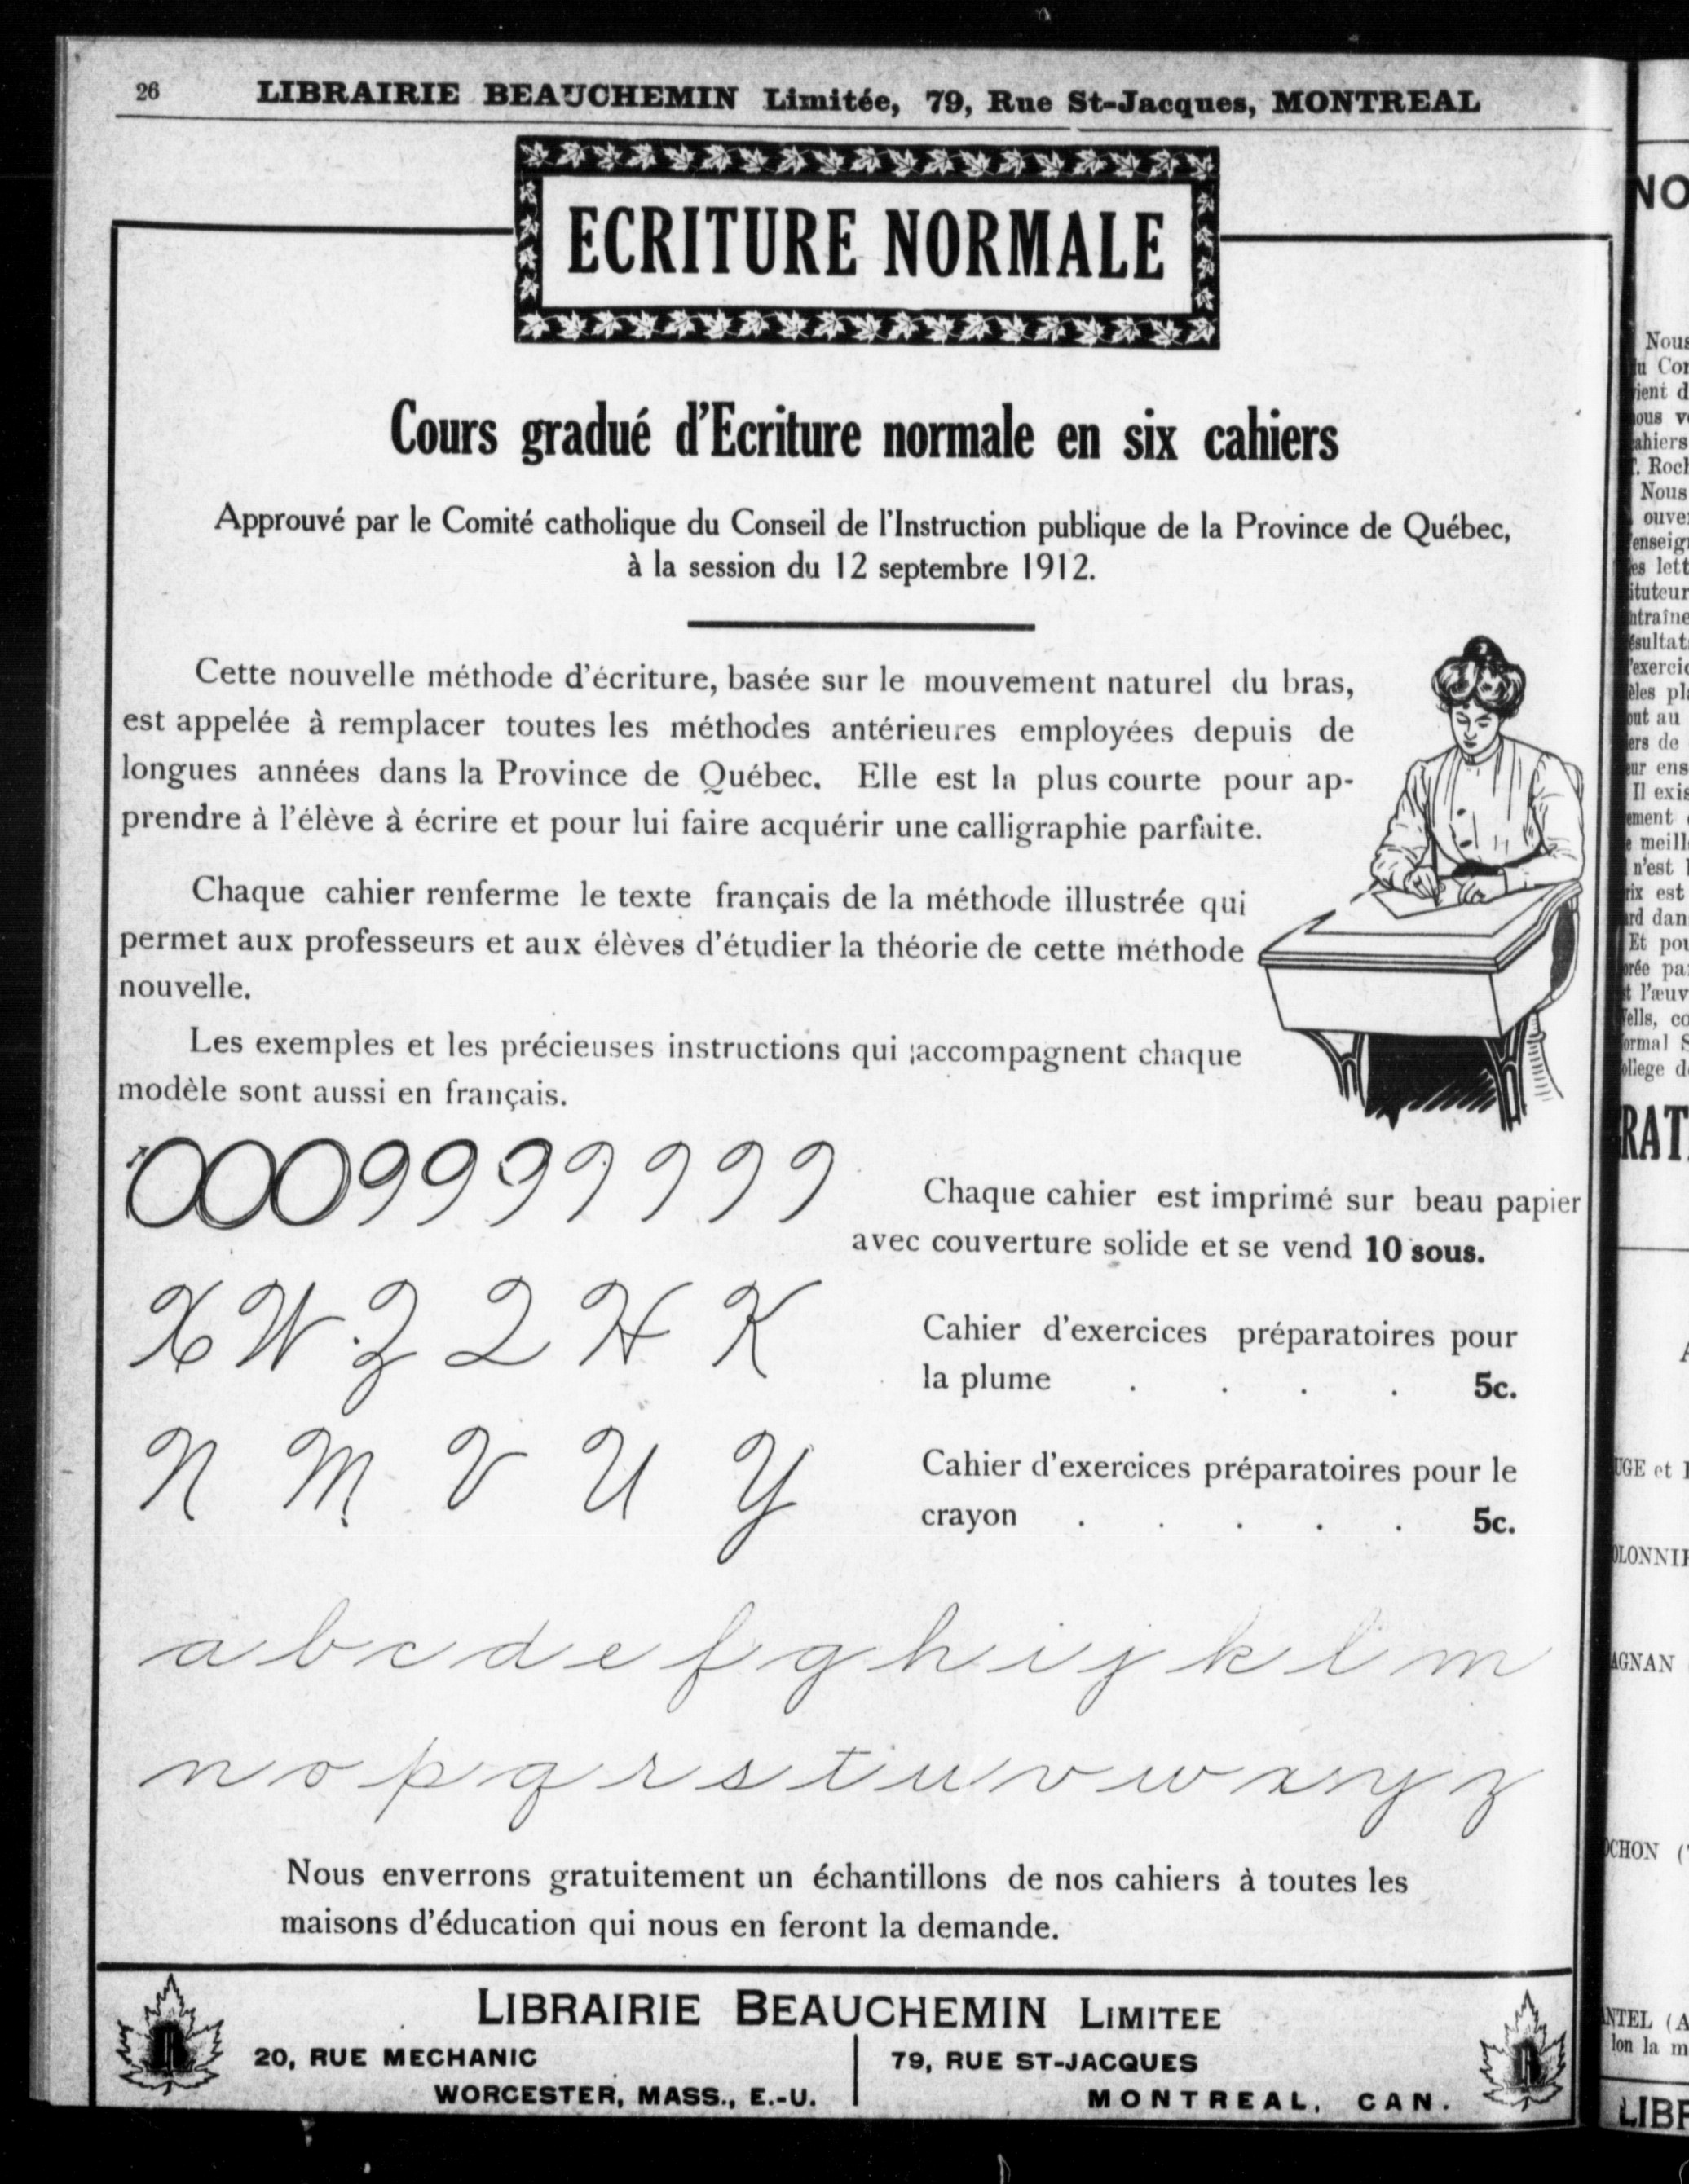 26 LIBRAIRIE BEAUCHEMIN Limitée, 79, Rue St-Jacques, MONTREAL
ECRITURE NORMALE
Cours gradué d'Ecriture normale en six cahiers
Approuvé par le Comité catholique du Conseil de l'Instruction publique de la Province de Québec,
à la session du 12 septembre 1912.
Cette nouvelle méthode d'écriture, basée sur le mouvement naturel du bras,
est appelée à remplacer toutes les méthodes antérieures employées depuis de
longues années dans la Province de Québec. Elle est la plus courte pour ap-
prendre à l'élève à écrire et pour lui faire acquérir une calligraphie parfaite.
Chaque cahier renferme le texte français de la méthode illustrée qui
permet aux professeurs et aux élèves d'étudier la théorie de cette méthode
nouvelle.
Les exemples et les précieuses instructions qui accompagnent chaque
modèle sont aussi en français.
0009999999
Chaque cahier est imprimé sur beau papier
avec couverture solide et se vend 10 sous.
X W Z Q H K
Cahier d'exercices préparatoires pour
la plume . . . . 5c.
N M V U Y
Cahier d'exercices préparatoires pour le
crayon . . . . . 5c.
a b c d e f g h i j k l m
n o p q r s t u v w x y z
Nous enverrons gratuitement un échantillons de nos cahiers à toutes les
maisons d'éducation qui nous en feront la demande.
LIBRAIRIE BEAUCHEMIN LIMITEE
20, RUE MECHANIC
WORCESTER, MASS., E.-U.
79, RUE ST-JACQUES
MONTREAL, CAN.